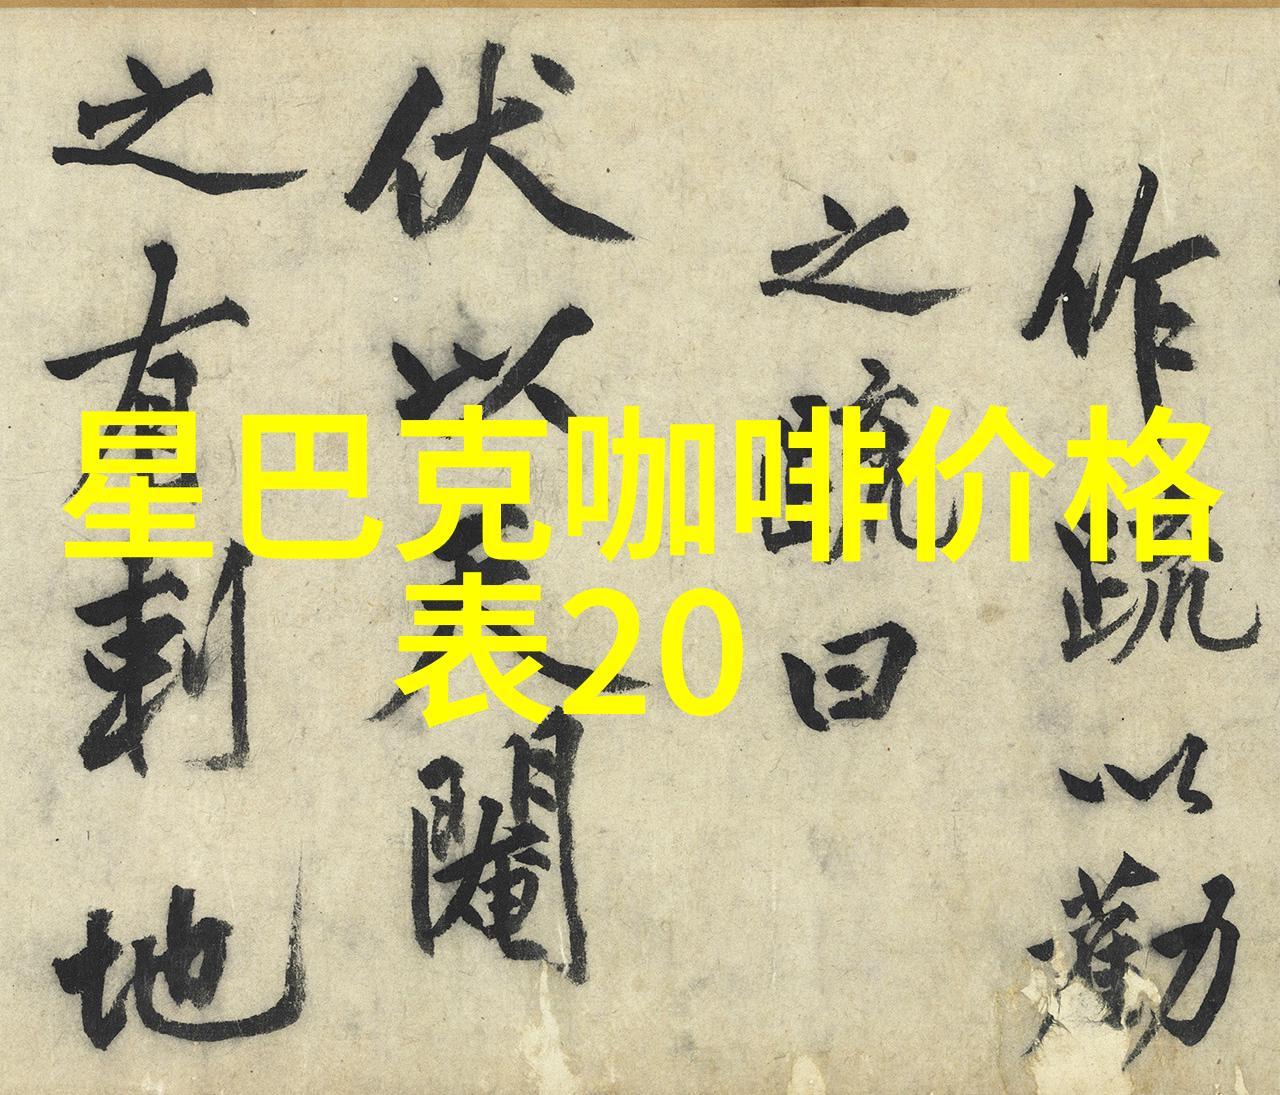 星巴克咖啡价格
表20
作疏以勸
之疏曰
伏以天閹
之有刺地